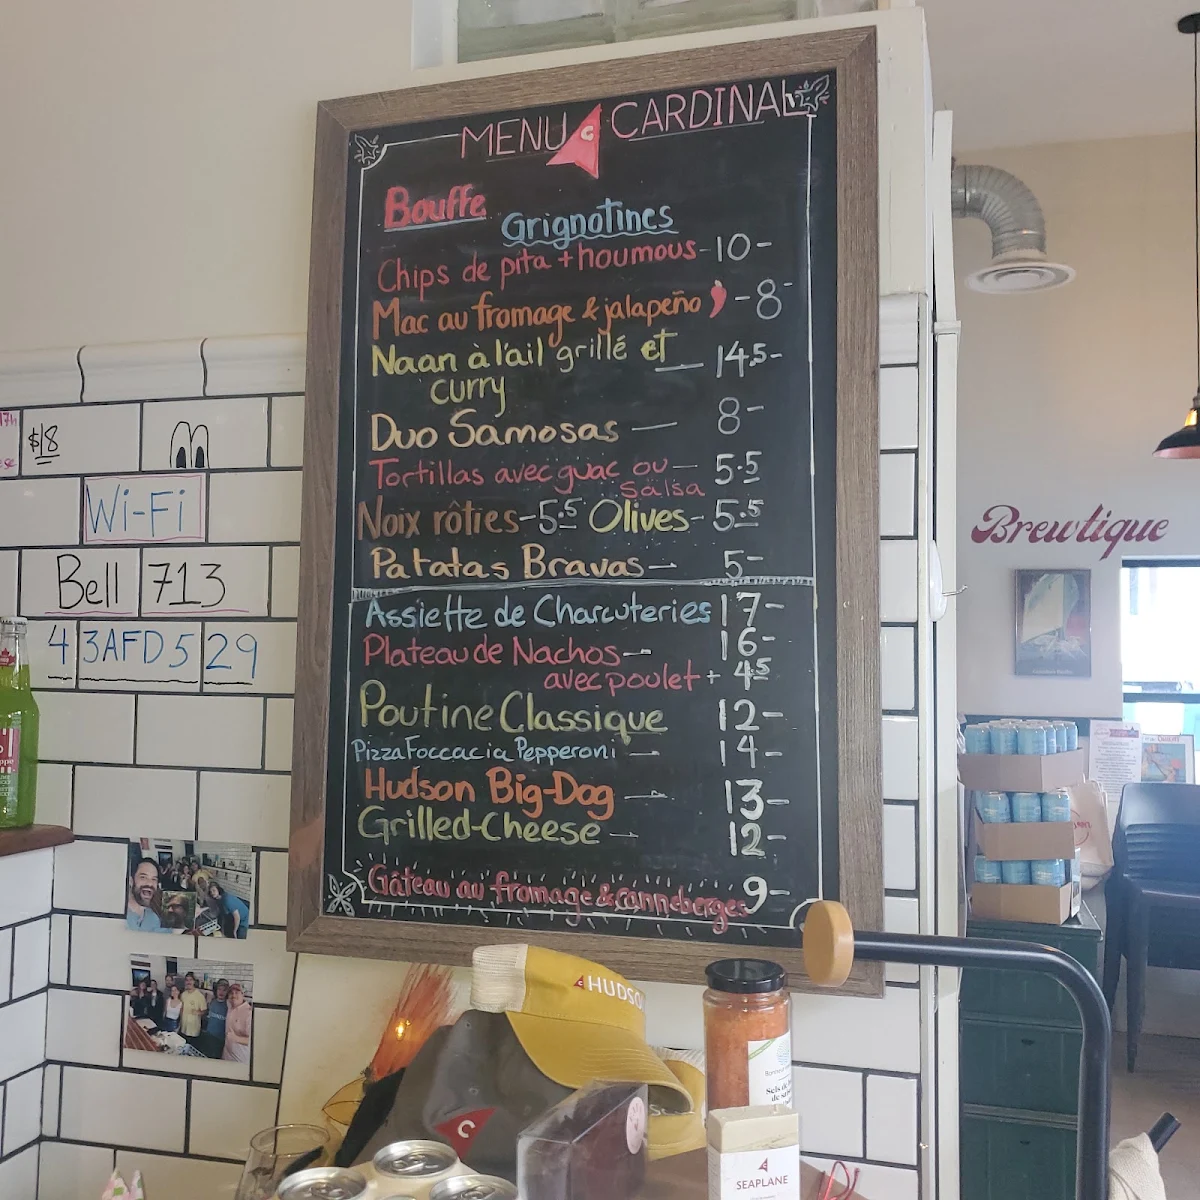 MENU C CARDINAL
Bouffe
Grignotines
Chips de pita + houmous - 10-
Mac au fromage & jalapeño - 8-
Naan à l'ail grillé et — 14.5-
curry
Duo Samosas — 8-
Tortillas avec guac ou — 5.5
Salsa
Noix rôties - 5.5 Olives - 5.5
Patatas Bravas — 5-
Assiette de Charcuteries 17-
Plateau de Nachos — 16-
avec poulet + 4.5
Poutine Classique 12-
Pizza Foccacia Pepperoni — 14-
Hudson Big-Dog — 13-
Grilled-Cheese — 12-
Gâteau au fromage & canneberges 9-
17h
$18
Wi-Fi
Bell 713
43AFD529
Brewtique
C HUDSO
C
SEAPLANE